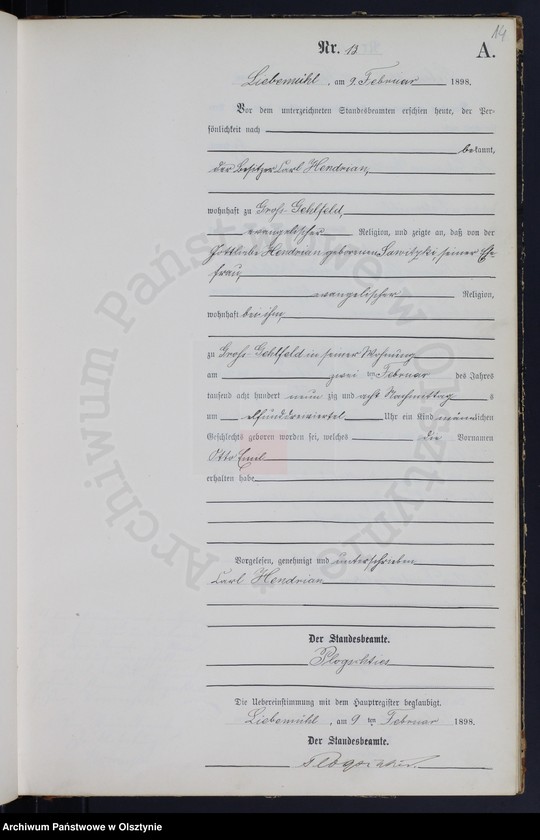 14
Nr. 13.
A.
Liebemühl, am 9. Februar 1898.
Vor dem unterzeichneten Standesbeamten erschien heute, der Per-
sönlichkeit nach
bekannt,
der Besitzer Carl Hendrian,
wohnhaft zu Groß-Gehlfeld,
evangelischer Religion, und zeigte an, daß von der
Gottliebe Hendrian geborenen Sawitzki, seiner Ehe
frau,
evangelischer Religion,
wohnhaft bei ihm,
zu Groß-Gehlfeld in seiner Wohnung
am zwei ten Februar des Jahres
tausend acht hundert neun zig und acht Nachmittag s
um elfunddreiviertel Uhr ein Kind männlichen
Geschlechts geboren worden sei, welches die Vornamen
Otto Emil
erhalten habe
Vorgelesen, genehmigt und unterschrieben
Carl Hendrian
Der Standesbeamte.
Die Uebereinstimmung mit dem Hauptregister beglaubigt.
Liebemühl, am 9 ten Februar 1898.
Der Standesbeamte.
Archiwum Państwowe w Olsztynie
Archiwum Państwowe w Olsztynie